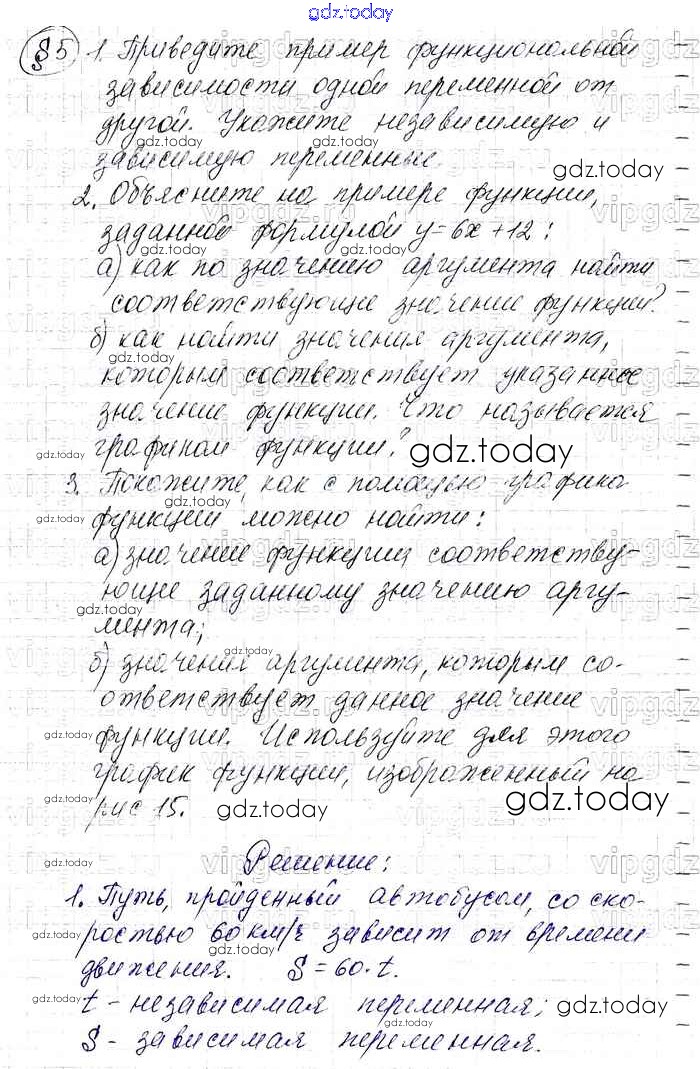 gdz.today
§5 1. Приведите пример функциональной
зависимости одной переменной от
другой. Укажите независимую и
зависимую переменные.
2. Объясните на примере функции,
заданной формулой y=6x+12:
а) как по значению аргумента найти
соответствующие значение функции?
б) как найти значения аргумента,
которым соответствует указанное
значение функции. Что называется
графиком функции?
3. Покажите, как с помощью графика
функции можно найти:
а) значение функции соответству-
ющие заданному значению аргу-
мента;
б) значения аргумента, которым со-
ответствует данное значение
функции. Используйте для этого
график функции, изображенный на
рис 15.
Решение:
1. Путь, пройденный автобусом, со ско-
ростью 60 км/ч зависит от времени
движения. S = 60·t.
t - независимая переменная;
S - зависимая переменная.